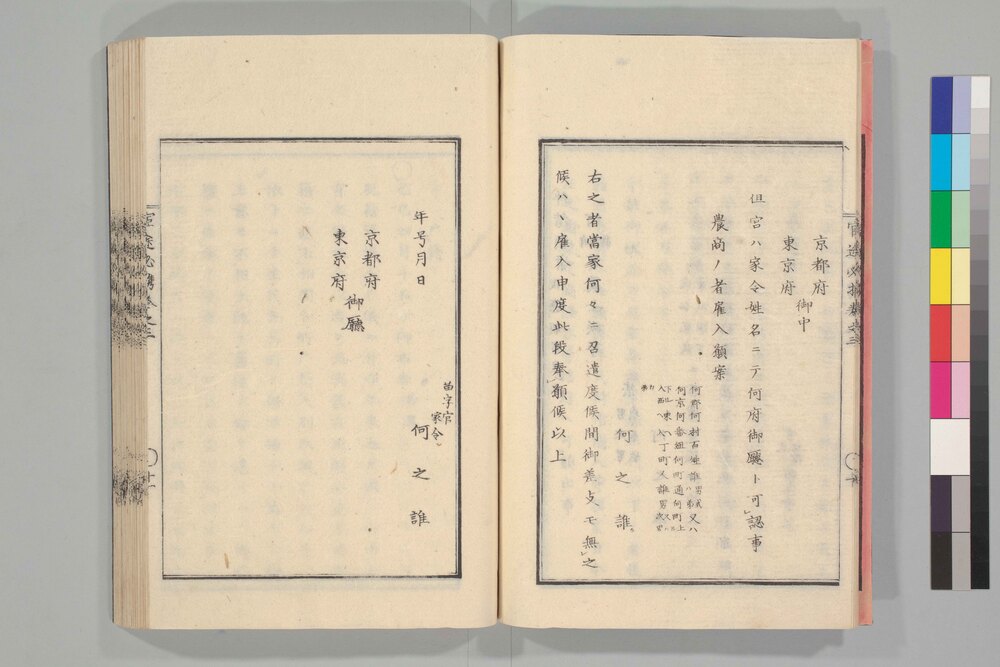 京都府
東京府
御中
但宮ハ家令姓名ニテ何府御廳ト可認事
農商ノ者雇入願案
何郡何村百姓誰男或
又ハ
何京何番組何町通何町上
入西ヘ入丁町人誰男
何之誰
右之者當家何々ニ召遣度候間御差支モ無之
候ハヽ雇入申度此段奉願候以上
年号月日
苗字官
家令
何之誰
京都府
東京府
御廳